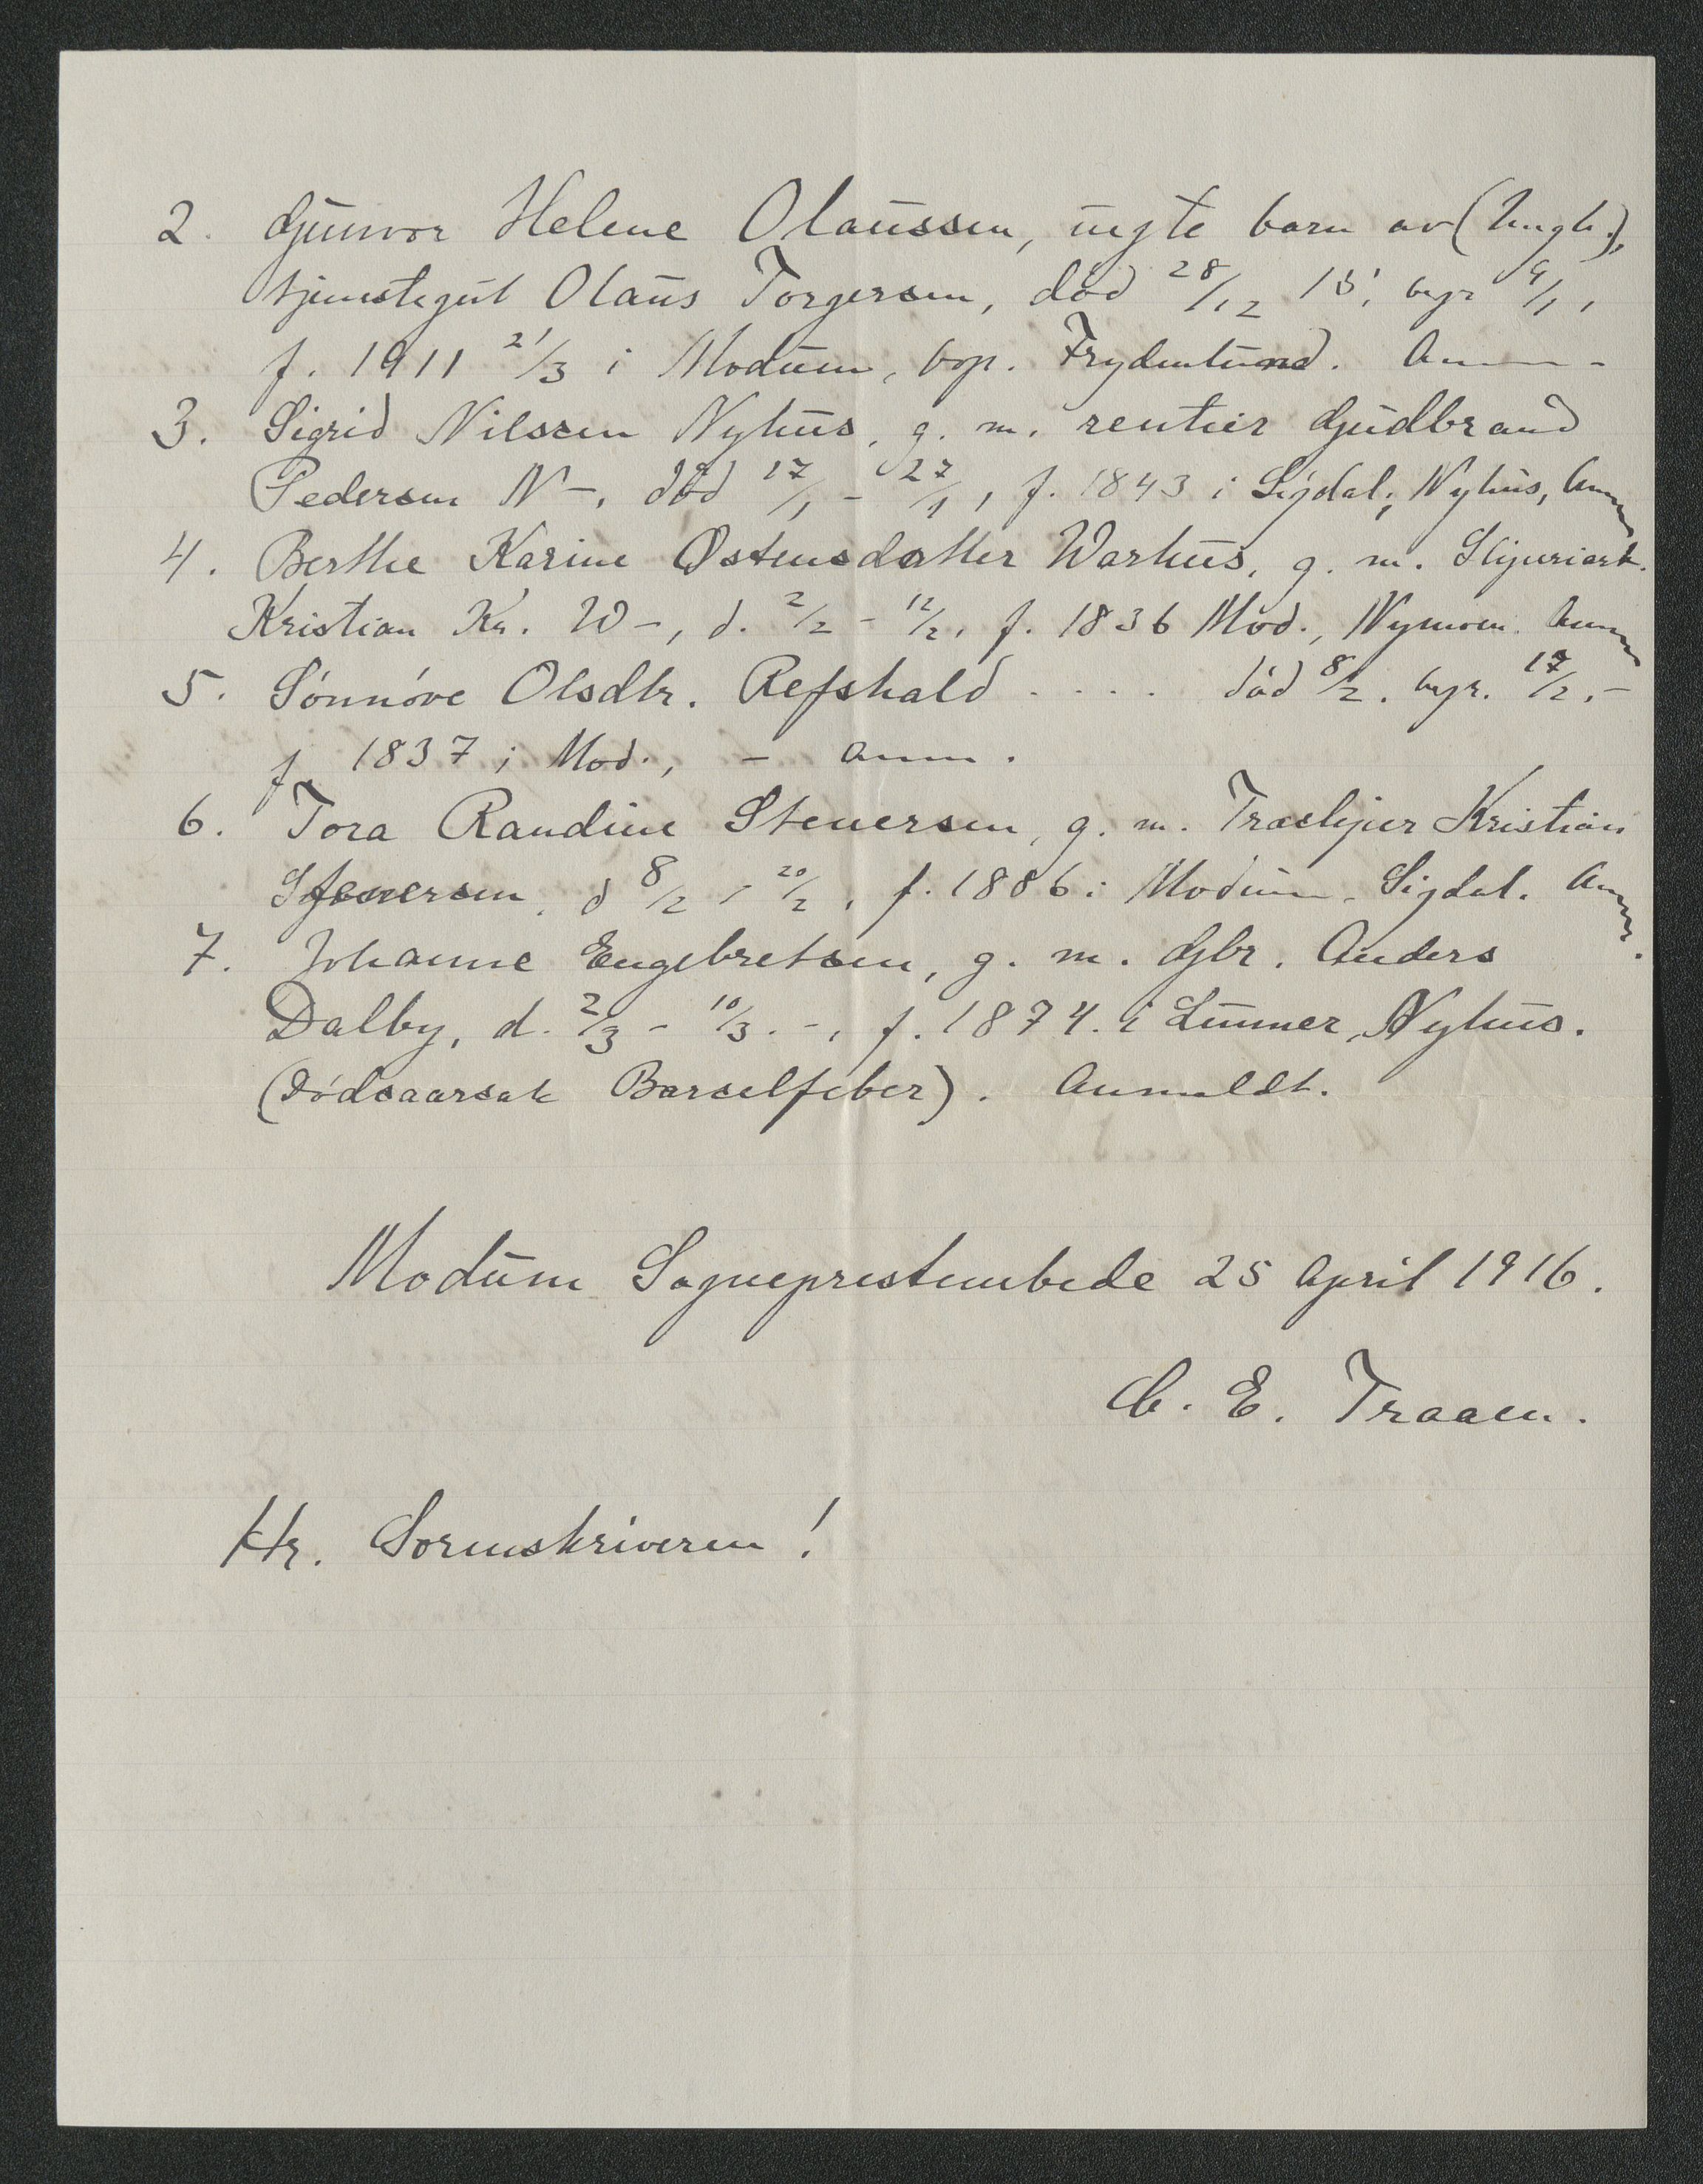 2. Gunvor Helene Olaussen, uegte barn av (Ungk.),
tjenstegut Olaus Torgersen, död 28/12 15, begr 4/1,
f. 1911 21/3 i Modum, bop. Frydenlund. Anm -
3. Sigrid Nilssen Nyhus, g. m. rentier Gudbrand
Pedersen N-, död 17/1 - 27/1, f. 1843 i Sigdal, Nyhus, Anm
4. Berthe Karine Østensdatter Warhus, g. m. Sliperiarb.
Kristian Kr. W-, d. 2/2 - 12/2, f. 1836 Mod., Nymoen. Anm
5. Sónnóve Olsdtr. Refshald . . . . död 8/2. begr. 17/2. -
f. 1837 i Mod., - anm.
6. Tora Randine Stenersen, g. m. Træsliper Kristian
Stenersen, d 8/2, 20/2, f. 1886 i Modum. Sigdal. Anm.
7. Johanne Engebretsen, g. m. Gbr. Anders
Dalby, d. 2/3 - 10/3. -, f. 1874. i Lunner, Nyhus.
(Dódsaarsak Barselfeber). Anmeldt.
Modum Sogneprestembede 25 April 1916.
C. E. Traaen.
Hr. Sorenskriveren!